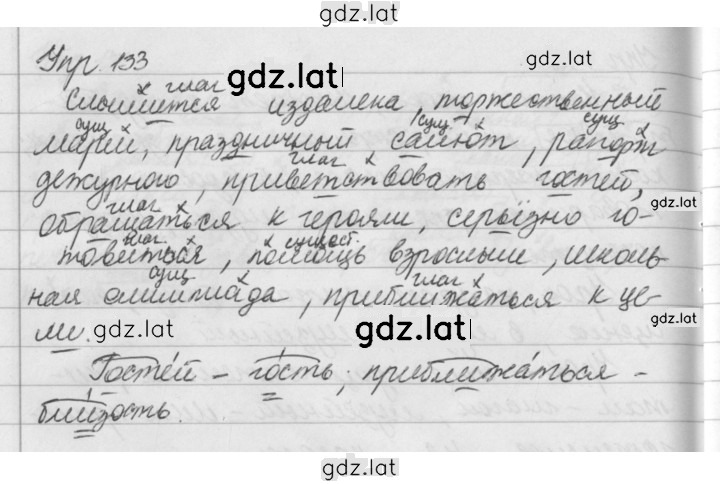 gdz.lat
Упр. 133
gdz.lat
глаг
Слышится издалека, торжественный
сущ сущ. сущ.
марш, праздничный салют, рапорт
глаг
дежурного, приветствовать гостей,
gdz.lat
глаг
обращаться к героям, серьёзно го-
глаг сущест.
товиться, помощь взрослым, школь-
сущ глаг
ная олимпиада, приближаться к це-
gdz.lat
ли.
gdz.lat
Гостей – гость; приближаться –
близость.
gdz.lat